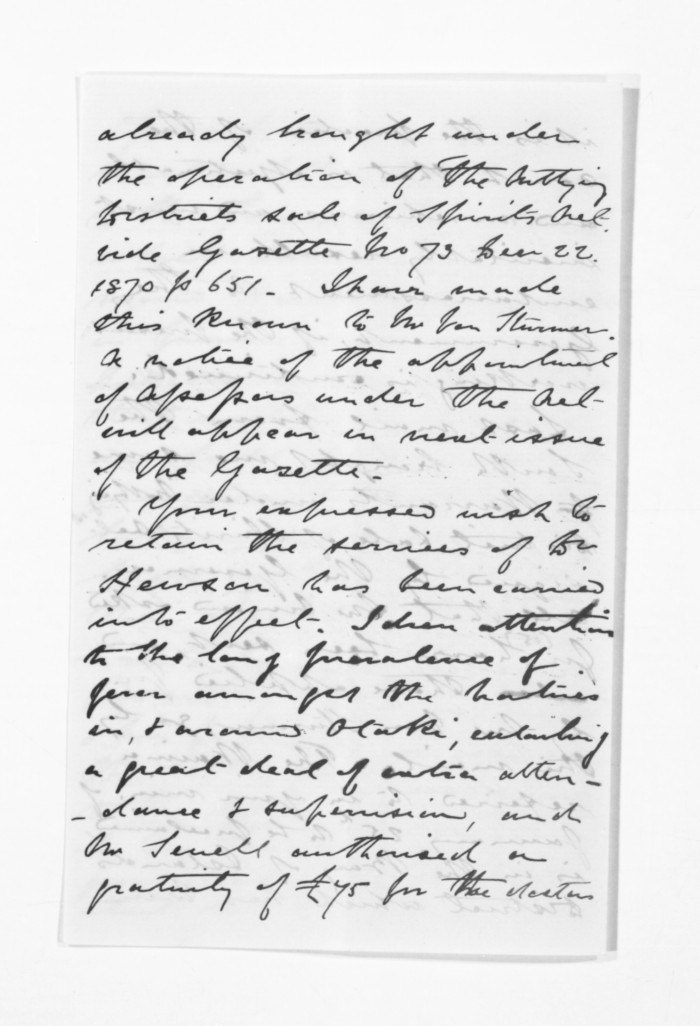 already brought under
the operation of "The Outlying
Districts sale of Spirits Act.
vide Gazette No 73 Decr 22.
1870 p 651 - I have made
this known to Mr Von Sturmer.
A notice of the appointment
of Assessors under the Act
will appear in next issue
of the Gazette -
Your expressed wish to
retain the services of Dr
Hewson has been carried
into effect. I drew attention
to the long prevalence of
fever amongst the natives
in, & around Otaki, entailing
a great deal of extra atten-
-dance & supervision, and
Mr Sewell authorised a
gratuity of £75 for the doctors